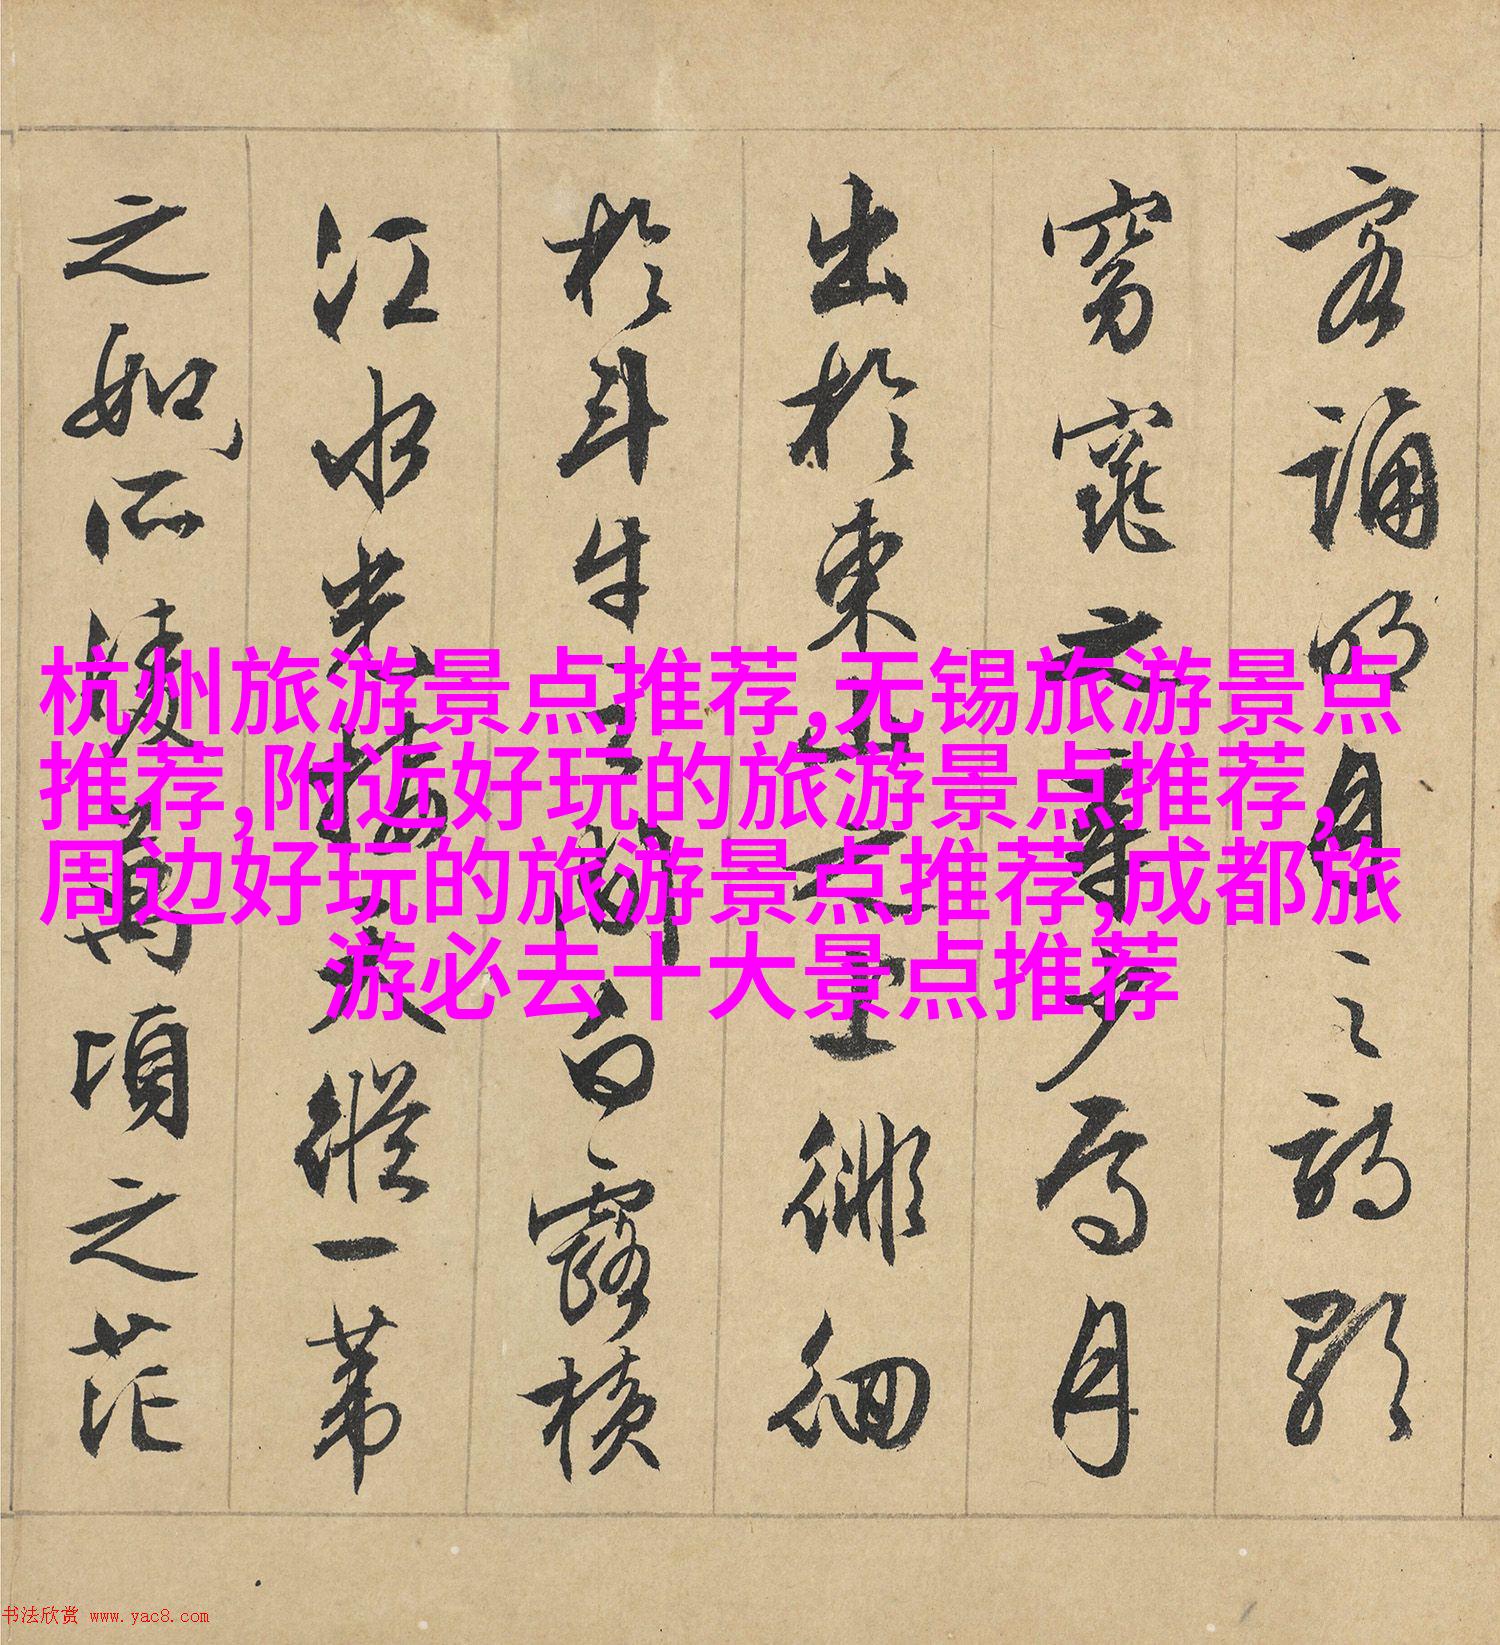 客誦明月之詩歌
窈窕之章少焉月
出於東山之上徘徊
於斗牛之間白露橫
江水光接天縱一葦
之如所凌萬頃之茫
杭州旅游景点推荐,无锡旅游景点
推荐,附近好玩的旅游景点推荐,
周边好玩的旅游景点推荐,成都旅
游必去十大景点推荐
书法欣赏 www.yac8.com